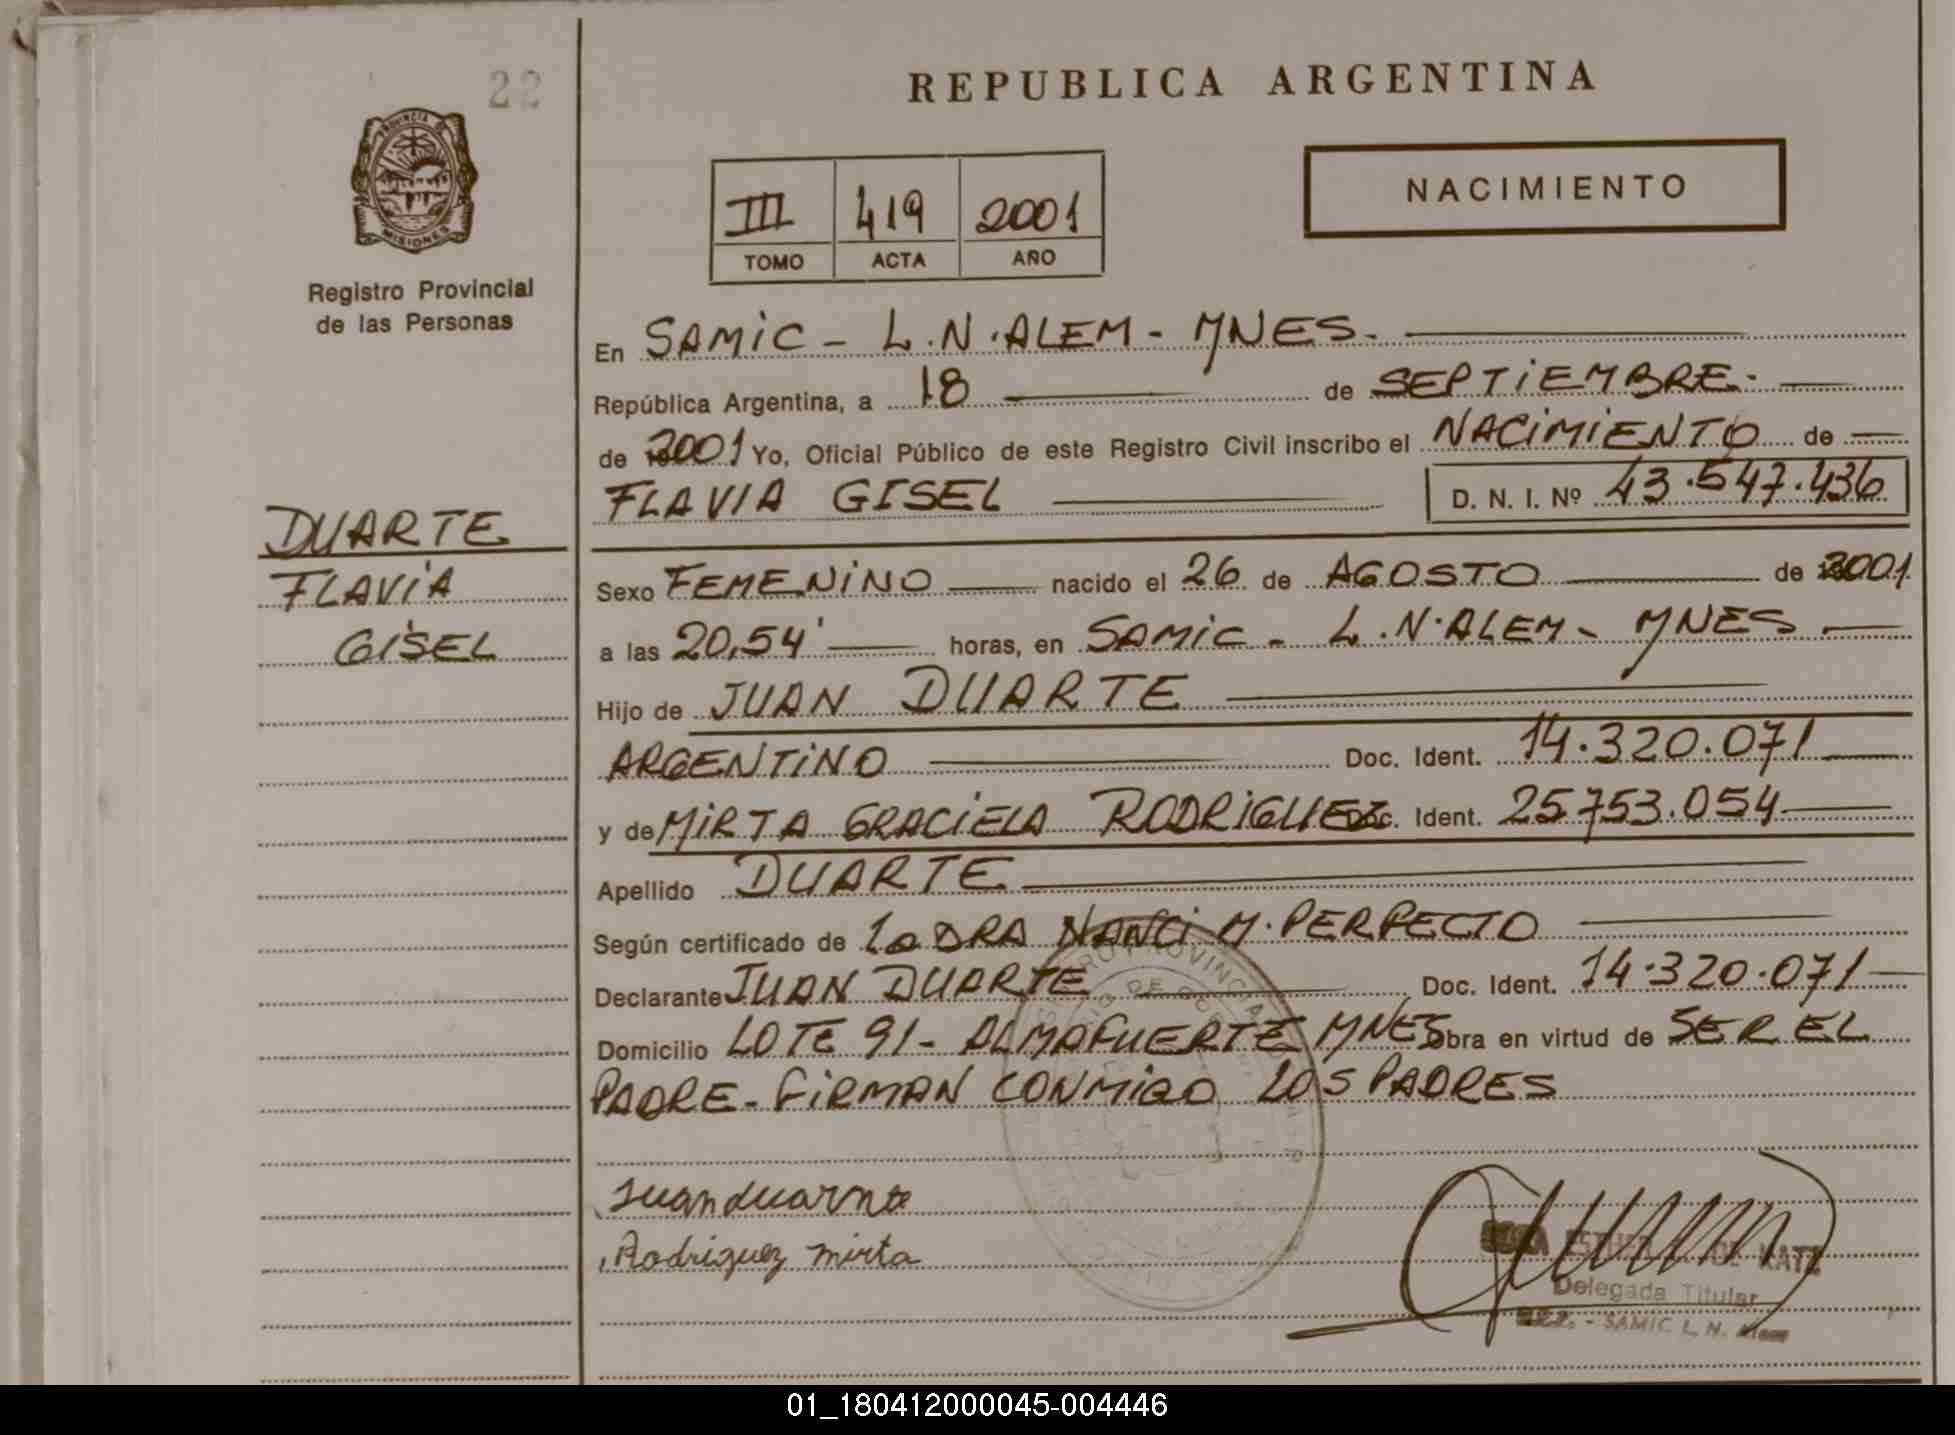 22
REPUBLICA ARGENTINA
PROVINCIA DE
MISIONES
Registro Provincial
de las Personas
III 419 2001
TOMO ACTA AÑO
NACIMIENTO
En SAMIC - L.N.ALEM - MNES.
República Argentina, a 18 de SEPTIEMBRE.
de 2001 Yo, Oficial Público de este Registro Civil inscribo el NACIMIENTO de
FLAVIA GISEL D. N. I. Nº 43.547.436
DUARTE
FLAVIA
GISEL
Sexo FEMENINO nacido el 26 de AGOSTO de 2001
a las 20,54' horas, en SAMIC - L.N.ALEM - MNES
Hijo de JUAN DUARTE
ARGENTINO Doc. Ident. 14.320.071
y de MIRTA GRACIELA RODRIGUEZ Doc. Ident. 25753.054
Apellido DUARTE
Según certificado de La DRA NANCI M. PERFECTO
Declarante JUAN DUARTE Doc. Ident. 14.320.071
Domicilio LOTE 91 - ALMAFUERTE MNES Obra en virtud de SER EL
PADRE - FIRMAN CONMIGO LOS PADRES
Juan duarnte
Rodriguez mirta
ESTHER DE KATZ
Delegada Titular
SAMIC L. N. Alem
01_180412000045-004446